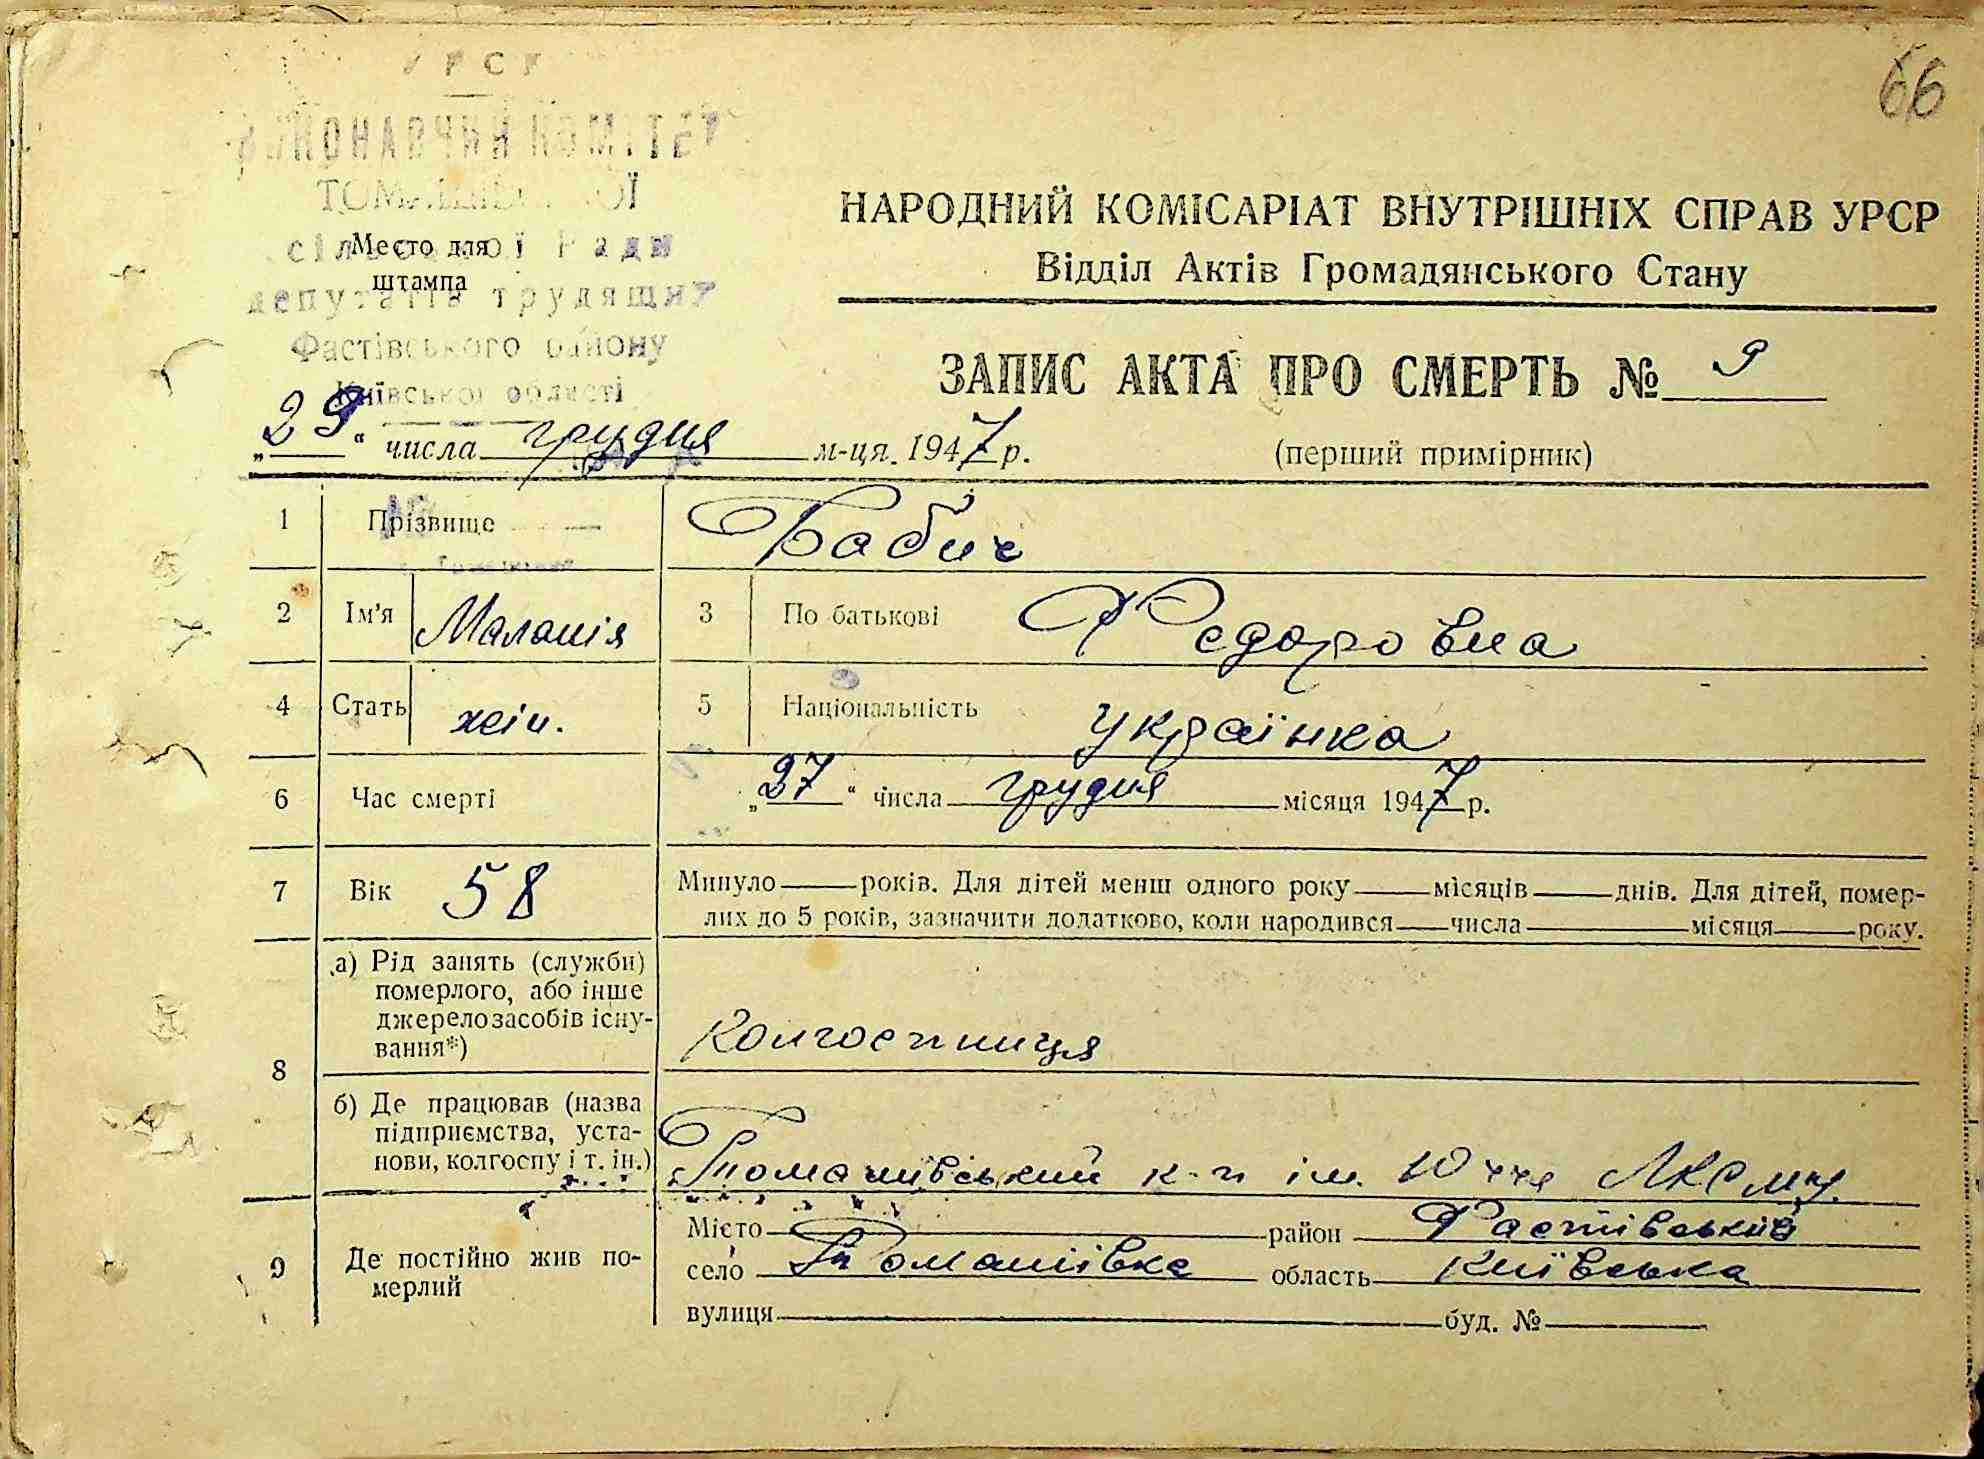 66
УРСР
ВИКОНАВЧИЙ КОМІТЕТ
ТОМАШІВСЬКОЇ
сільської Ради
Место для
штампа
депутатів трудящих
Фастівського району
Київської області
НАРОДНИЙ КОМІСАРІАТ ВНУТРІШНІХ СПРАВ УРСР
Відділ Актів Громадянського Стану
ЗАПИС АКТА ПРО СМЕРТЬ № 9
„29“ числа грудня м-ця. 1947 р.
(перший примірник)
1 Прізвище Бабич
2 Ім'я Маланія 3 По батькові Федоровна
4 Стать жін. 5 Національність українка
6 Час смерті „27“ числа грудня місяця 1947 р.
7 Вік 58 Минуло років. Для дітей менш одного року місяців днів. Для дітей, помер-
лих до 5 років, зазначити додатково, коли народився числа місяця року.
8 а) Рід занять (служби)
померлого, або інше
джерело засобів існу-
вання*)
Колгоспниця
б) Де працював (назва
підприємства, уста-
нови, колгоспу і т. ін.)
Томашівський к-п ім. 10 ччя ЛКСМУ.
9 Де постійно жив по-
мерлий
Місто район Фастівський
село Томашівка область Київська
вулиця буд. №